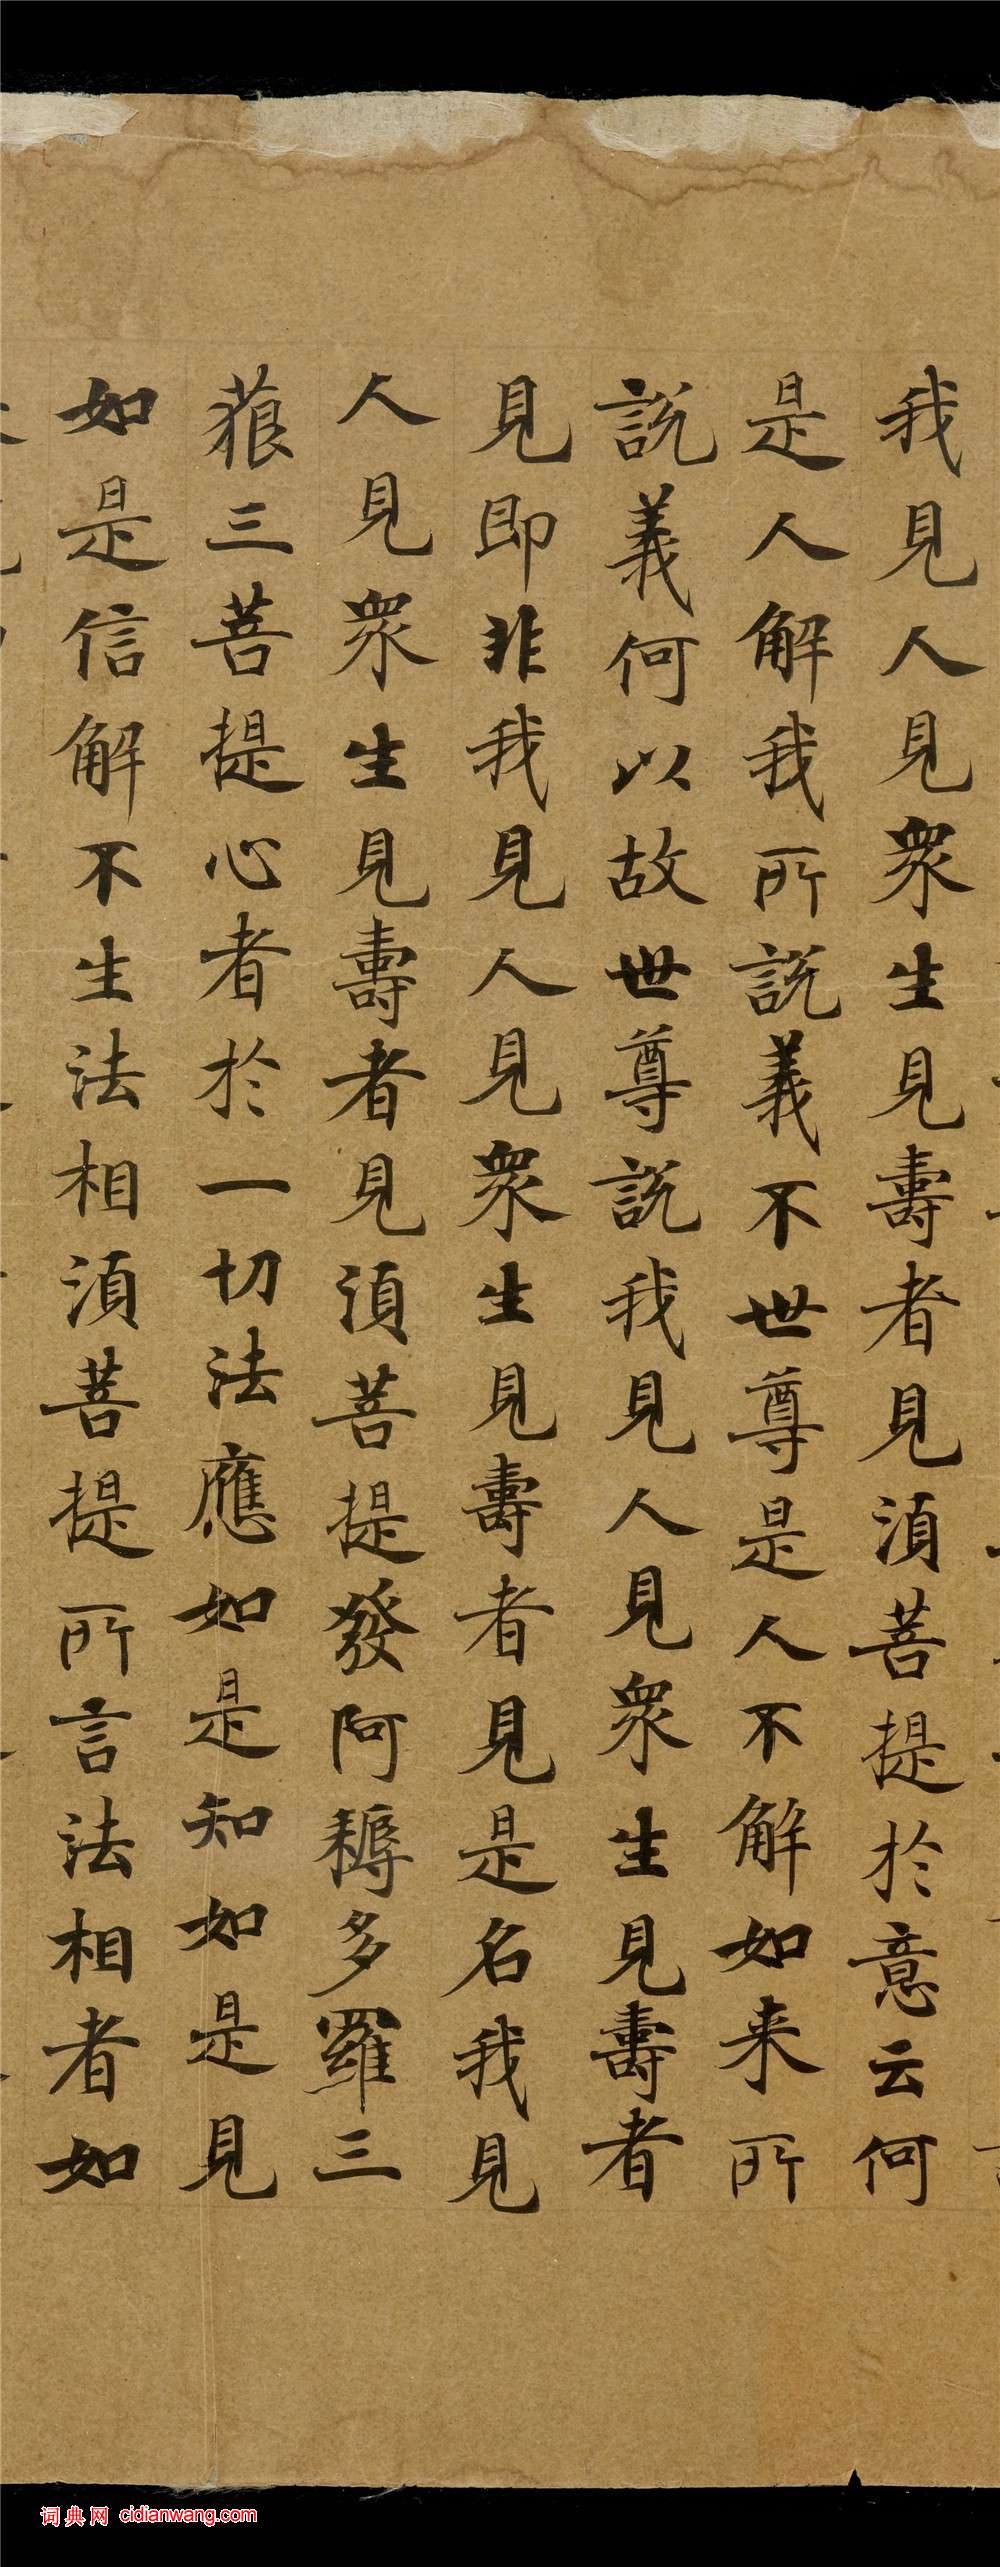 我見人見眾生見壽者見湏菩提於意云何
是人解我所說義不世尊是人不解如来所
說義何以故世尊說我見人見眾生見壽者
見即非我見人見眾生見壽者見是名我見
人見眾生見壽者見湏菩提發阿耨多羅三
藐三菩提心者於一切法應如是知如是見
如是信解不生法相湏菩提所言法相者如
词典网 cidianwang.com